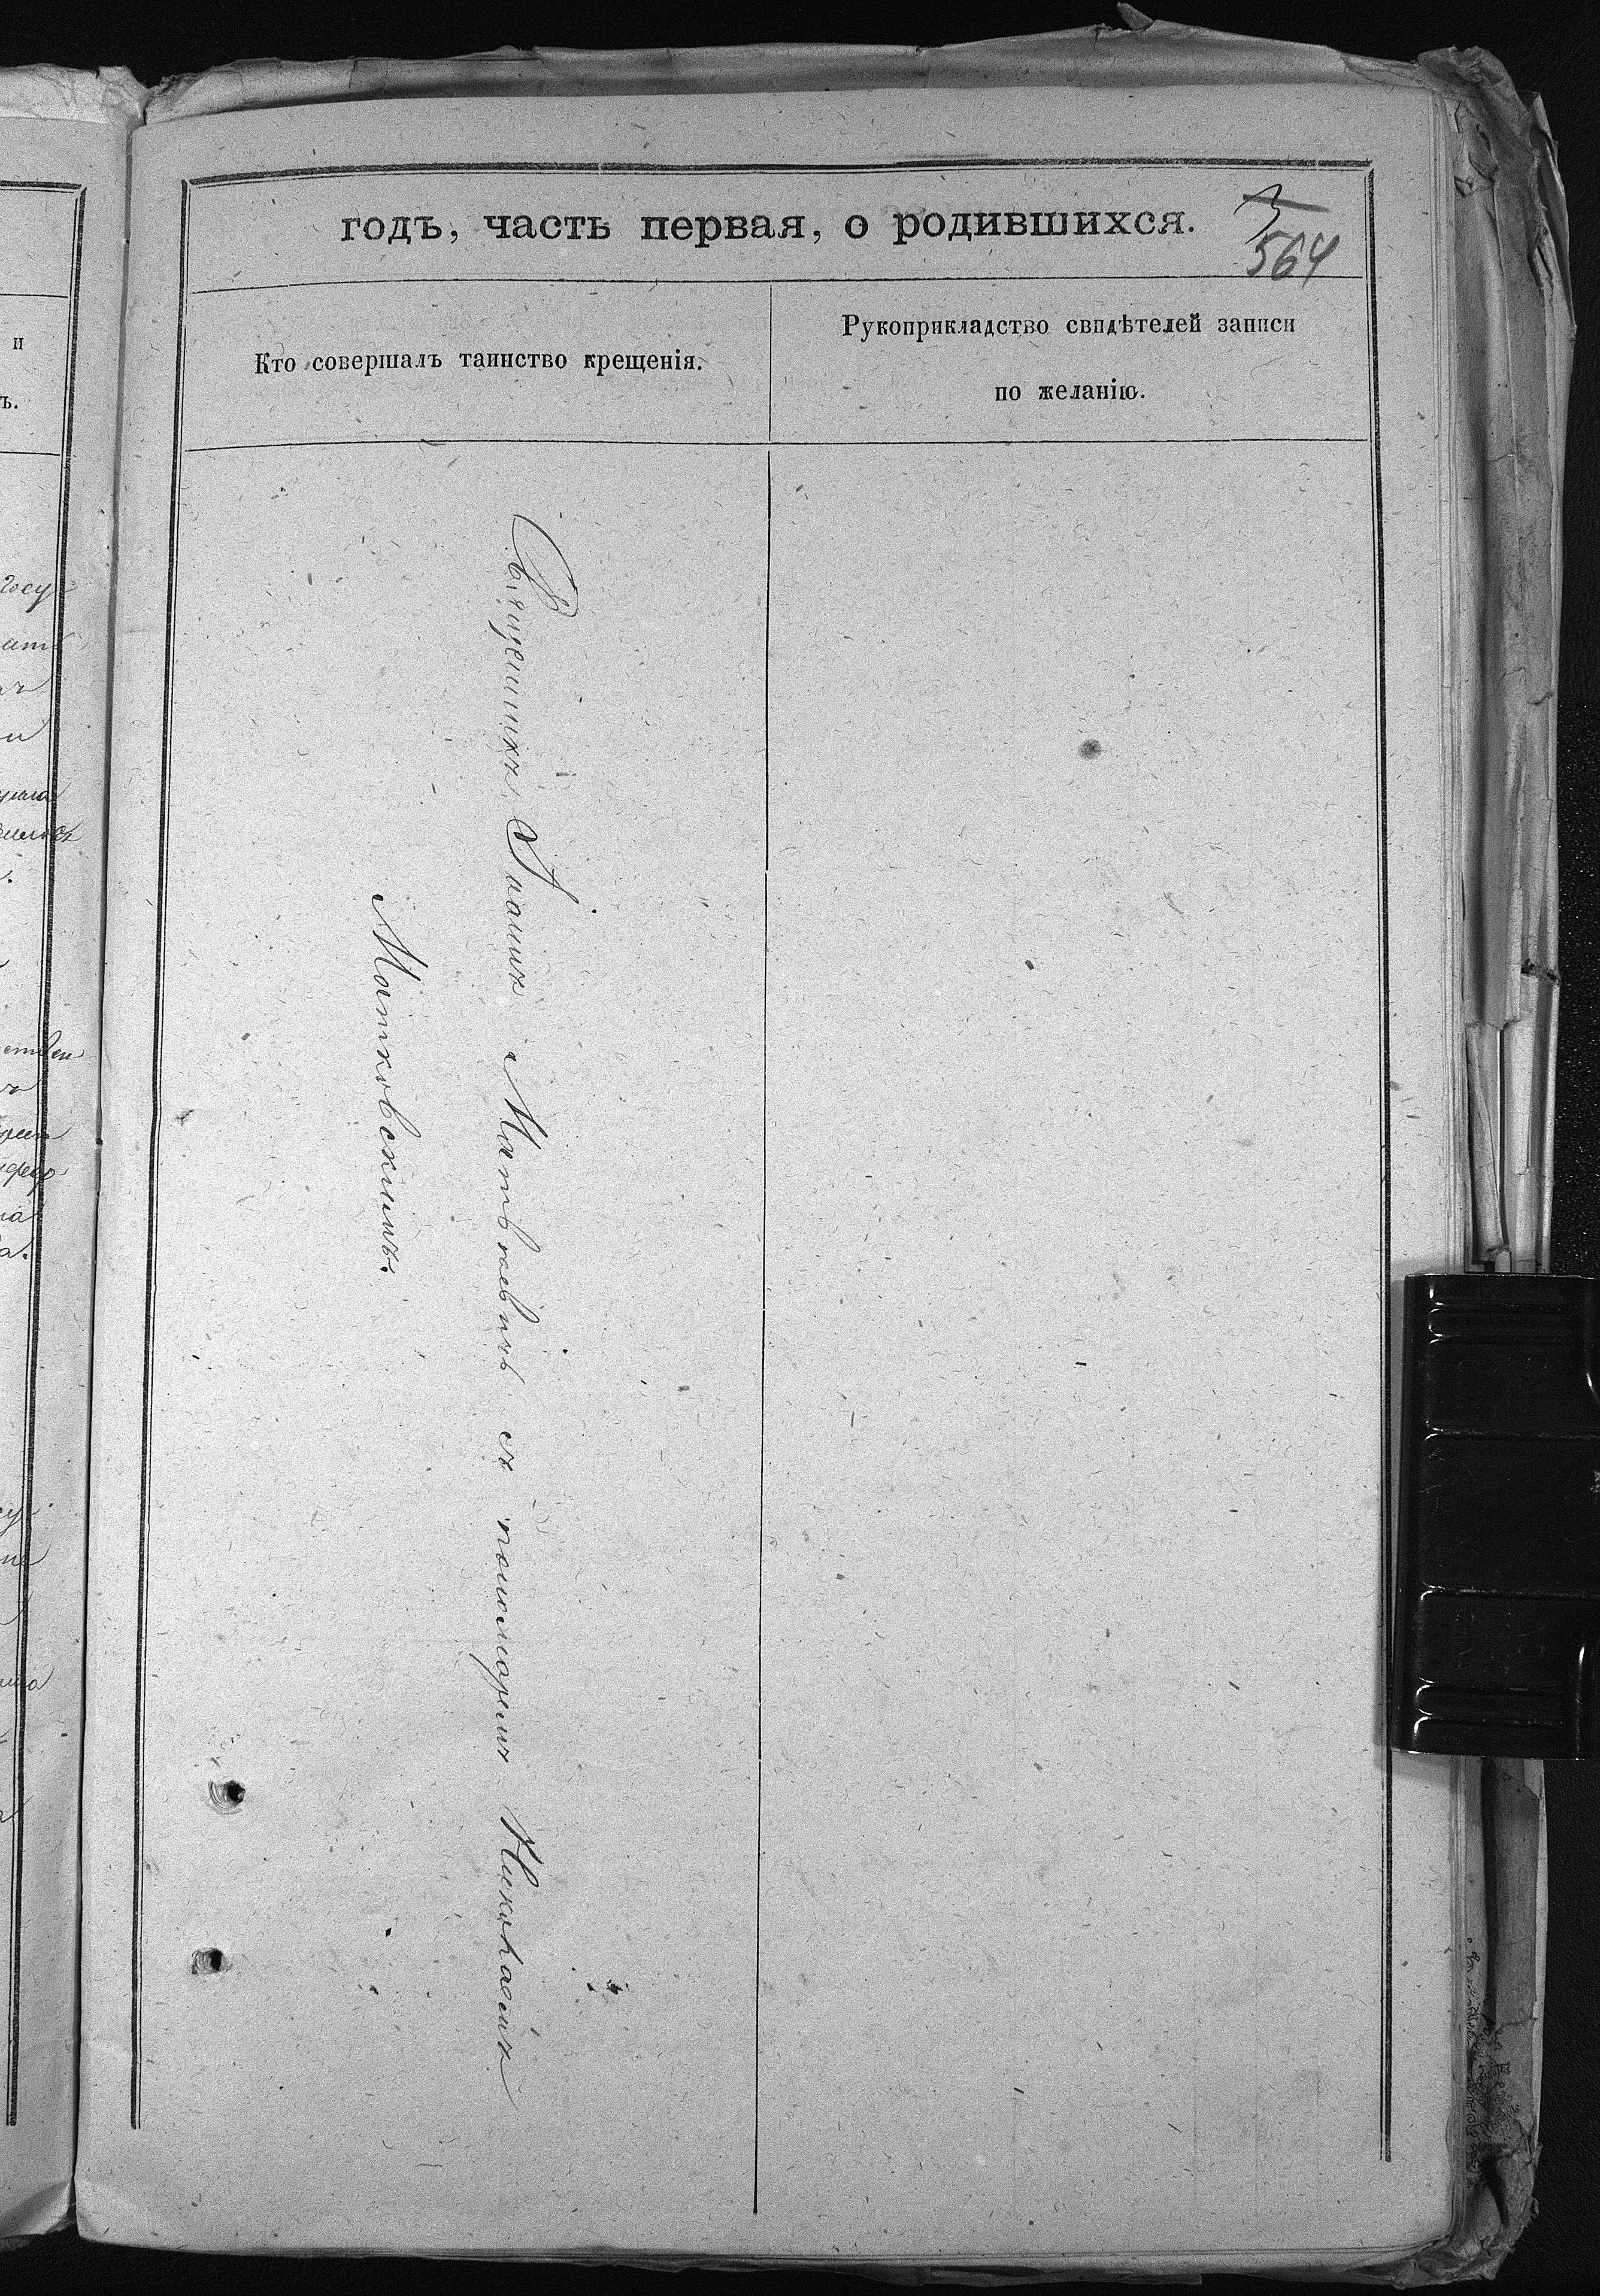 годъ, часть первая, о родившихся.
3
564
Кто совершалъ таинство крещенія.
Рукоприкладство свидѣтелей записи
по желанію.
Священникъ Іоаннъ Матѳеевичъ съ пономаремъ Николаемъ
Матковскимъ.
и
ъ.